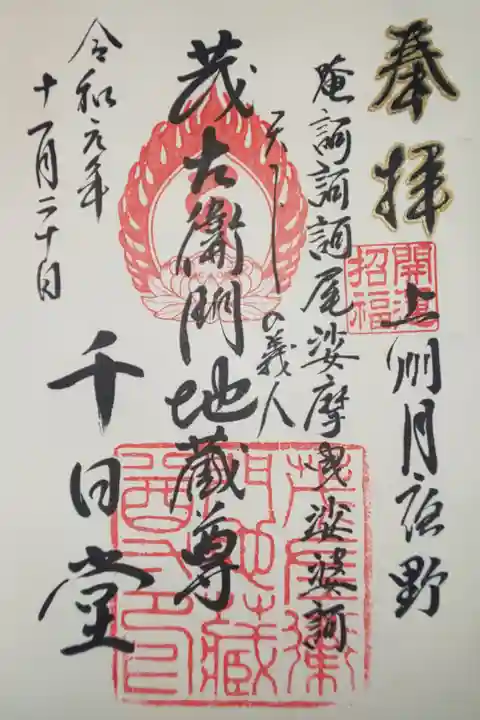 奉拝
上州月夜野
開運
招福
唵訶訶訶尾娑摩曳娑婆訶
天下の義人
茂左衛門地蔵尊
千日堂
令和元年
十一月二十日
茂左衛
門地蔵
尊之印